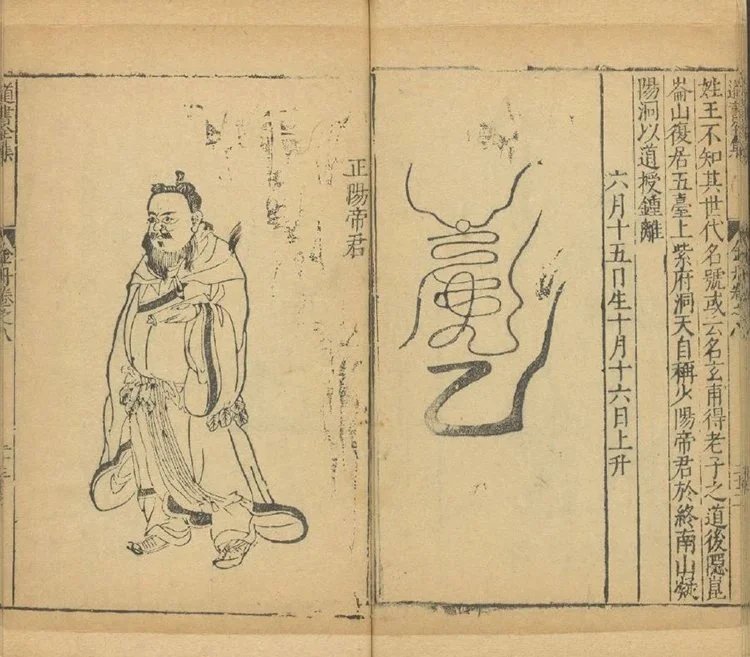 姓王不知其世代名號或云名玄甫得老子之道後隱崑
崙山復居五臺上紫府洞天自稱少陽帝君於終南山凝
陽洞以道授鍾離
六月十五日生十月十六日上升
正陽帝君
道書全集
金丹卷之八